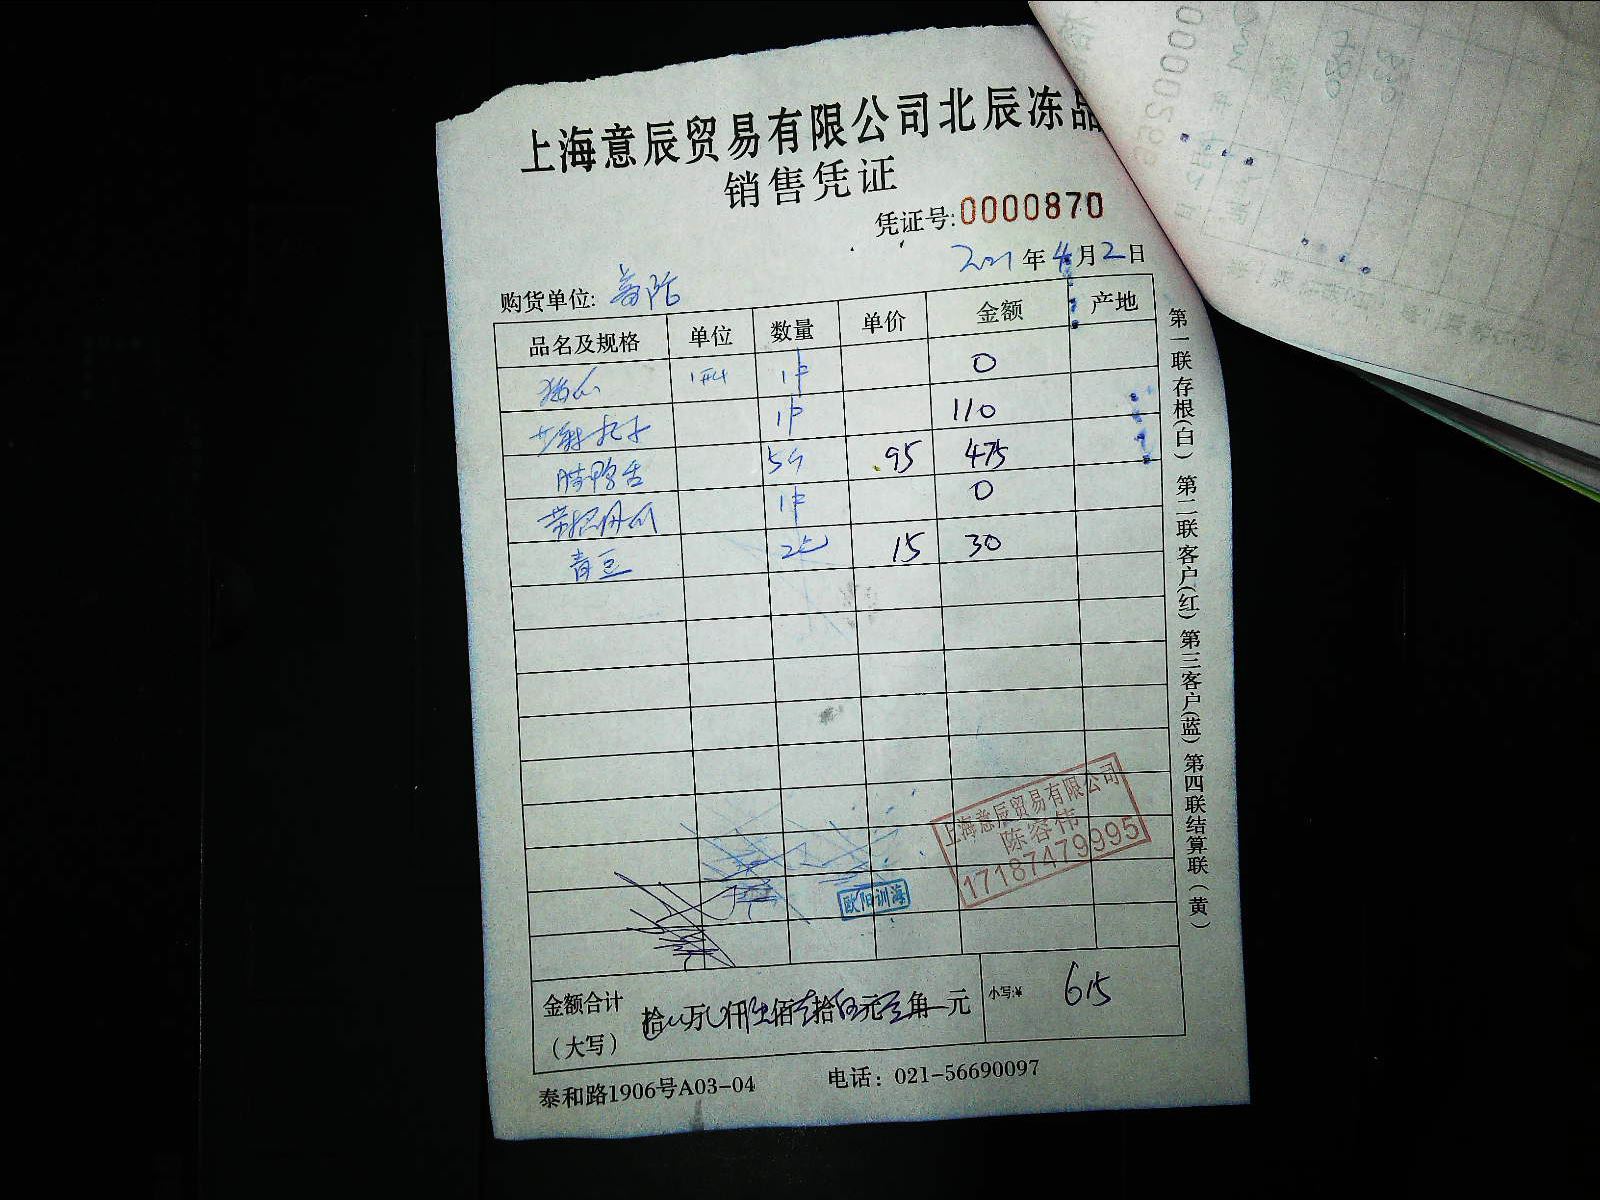 上海意辰贸易有限公司北辰冻品
销售凭证
凭证号:0000870
2021年4月2日
购货单位:
品名及规格 单位 数量 单价 金额 产地
1件 0
1件 110
5 95 475
1件 0
青豆 2 15 30
上海意辰贸易有限公司
陈容伟
17187479995
欧阳训海
金额合计 拾 万 仟陆佰壹拾伍元 角 元 小写:¥ 615
(大写)
泰和路1906号A03-04 电话: 021-56690097
第一联存根(白) 第二联客户(红) 第三客户(蓝) 第四联结算联(黄)